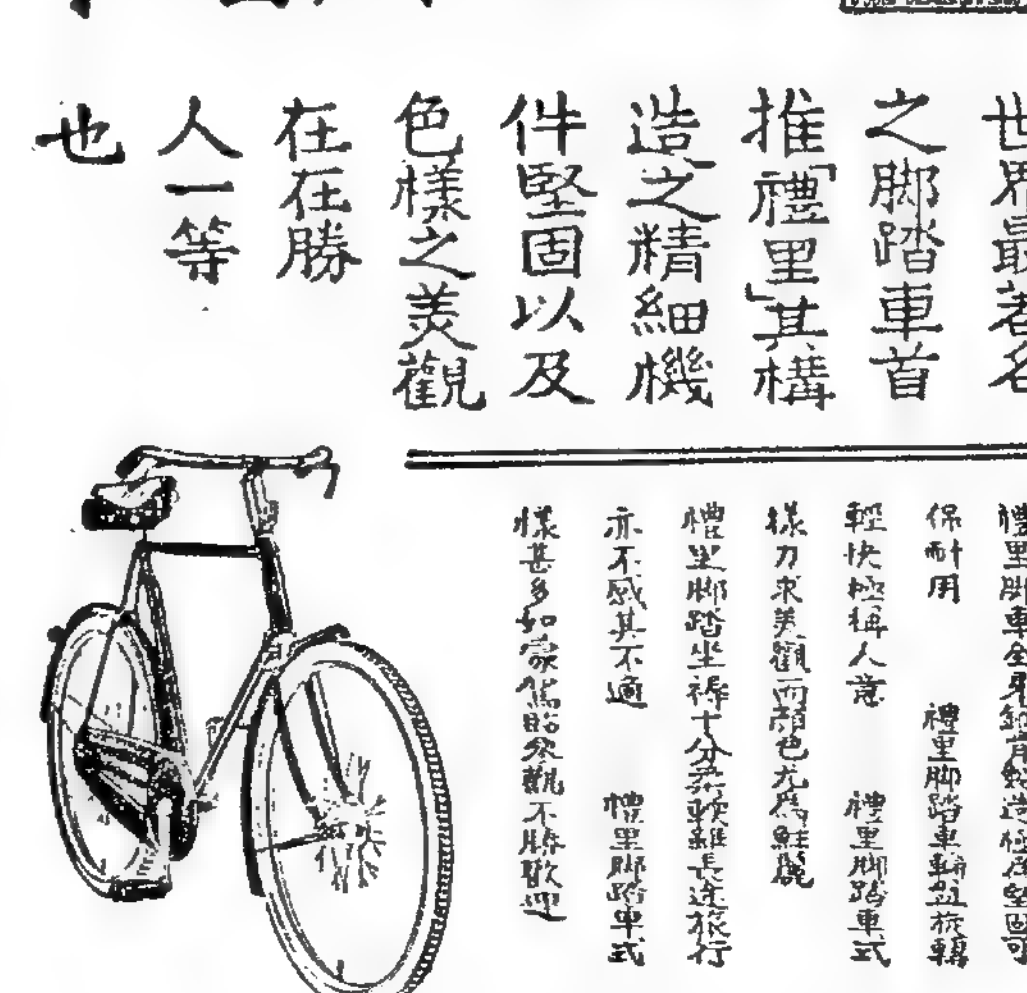 世界最著名
之脚踏車首
推「禮里」其構
造之精細機
件堅固以及
色樣之美觀
在在勝
人一等
也
禮里脚車全身
保耐用　禮里脚踏車輪盤旋轉
輕快極稱人意　禮里脚踏車式
樣力求美觀而顏色尤爲鮮麗
禮里脚踏坐褥十分柔軟雖長途旅行
亦不感其不適　禮里脚踏車式
樣甚多如蒙 參觀不勝歡迎